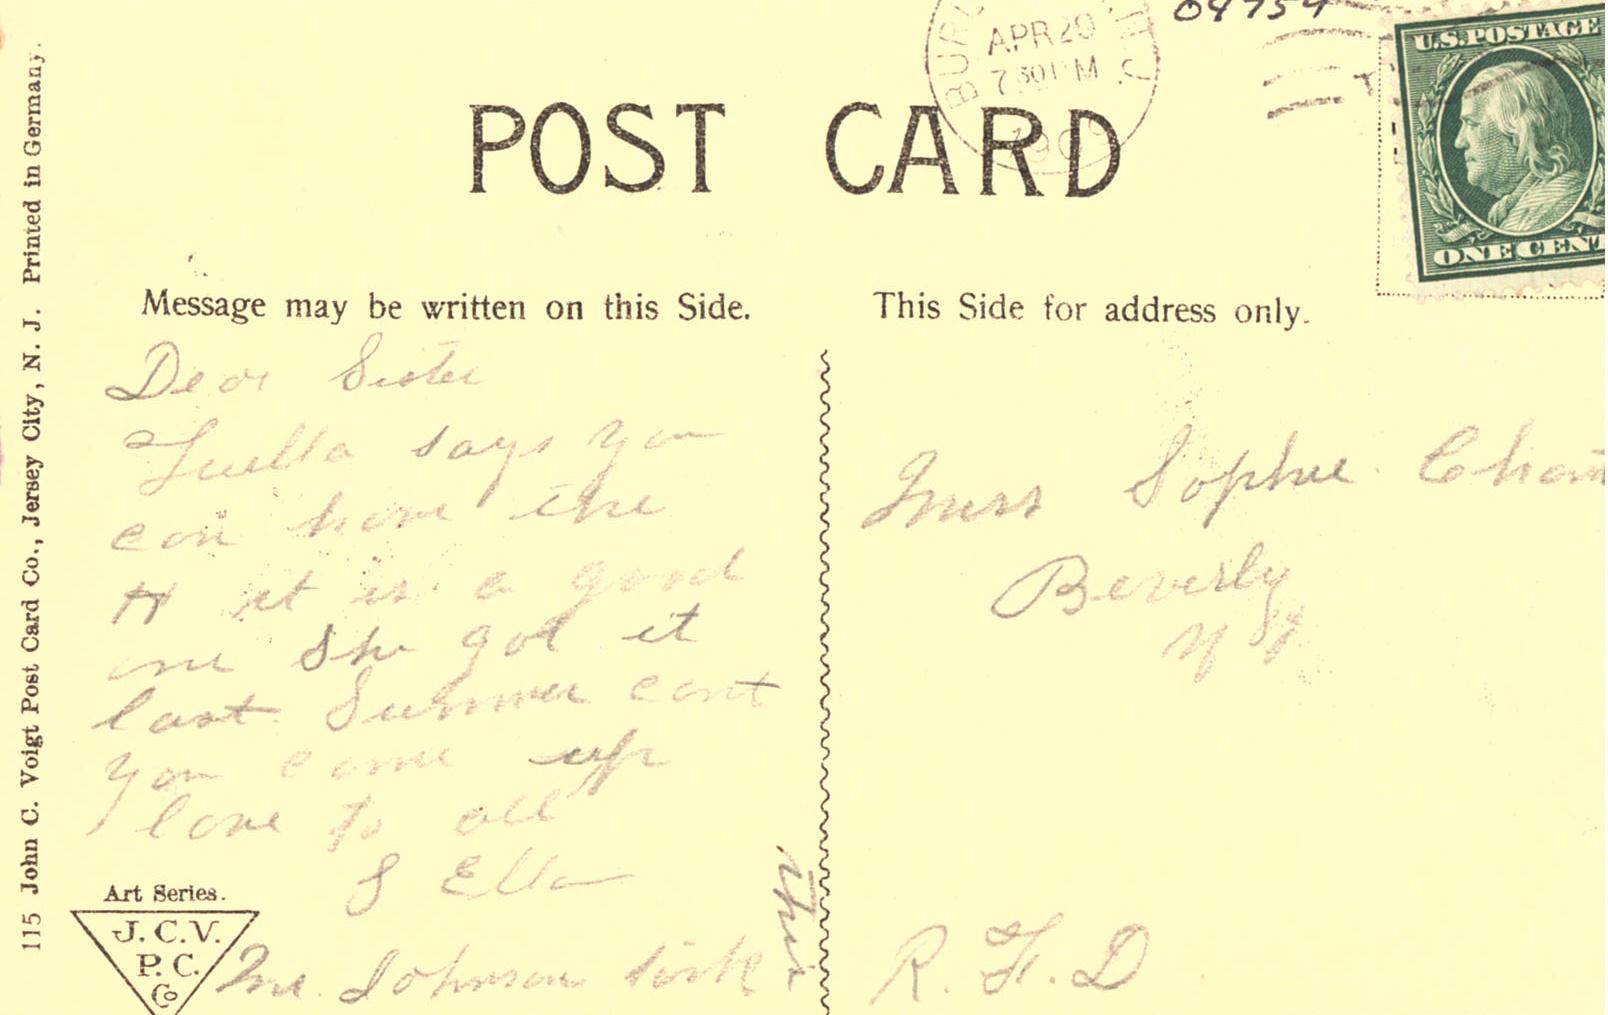 04754
BUR
APR 20
7 30 PM
N.J.
190
U.S. POSTAGE
ONE CENT
POST CARD
Message may be written on this Side.
This Side for address only.
Dear Sister
Luella says you
can have the
H it is a good
one she got it
last Summer cant
you come up
love to all
S Ella
Mr. Johnson
this
Miss Sophie
Beverly
N J
R. F. D
Art Series.
J. C. V.
P. C.
Co
115 John C. Voigt Post Card Co., Jersey City, N. J. Printed in Germany.